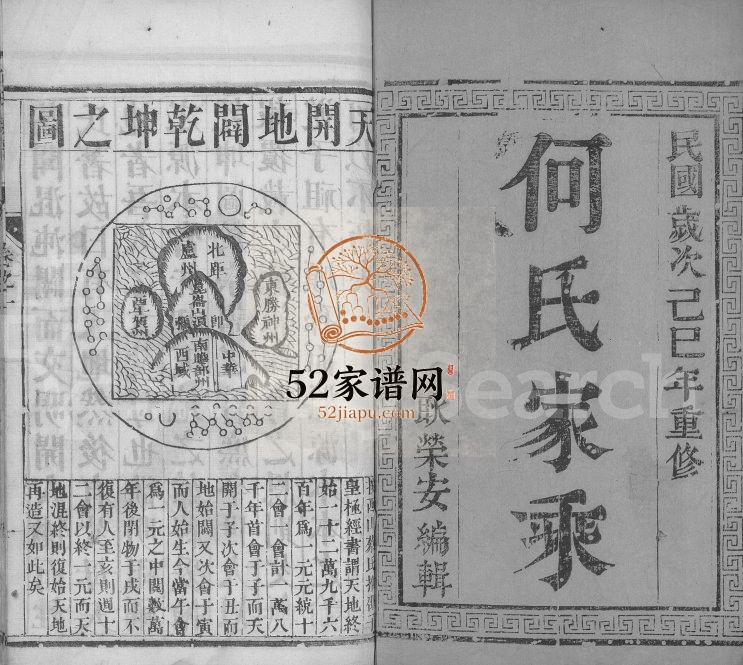 民國歲次己巳年重修
何氏家乘
榮安編輯
天開地闢乾坤之圖
北距
盧州
崑崙山頂
東勝神州
南贍部州
西域
中華
皇極經書謂天地終
始一十二萬九千六
百年爲一元元統十
二會一會計一萬八
千年首會丁子而天
開于子次會于丑而
地始闢又次會于寅
而人始生今當午會
爲一元之中閱數萬
年後閉物于戌而不
復有人至亥則週十
二會以終一元而天
地混終則復始天地
再造又如此矣
52家谱网
52jiapu.com
Search